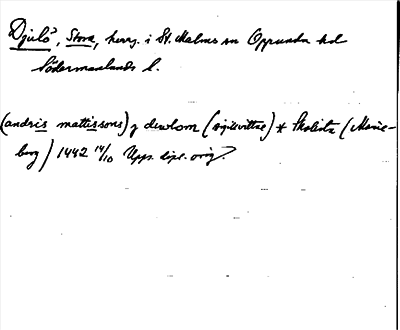 Djulö, Stora, herrg. i St. Malms sn Oppunda hd
Södermanlands l.
(andris mattissons) j diwlom (sigillvittne) * Skalista (Marie-
berg) 1442 14/10 Upps. dipl. orig.